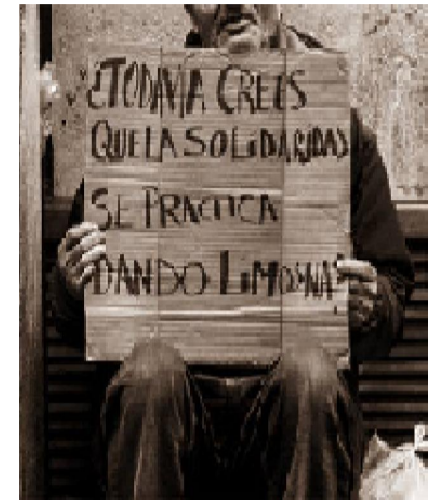 ¿TODAVIA CREES
QUE LA SOLIDARIDAD
SE PRACTICA
DANDO LiMOSNA?